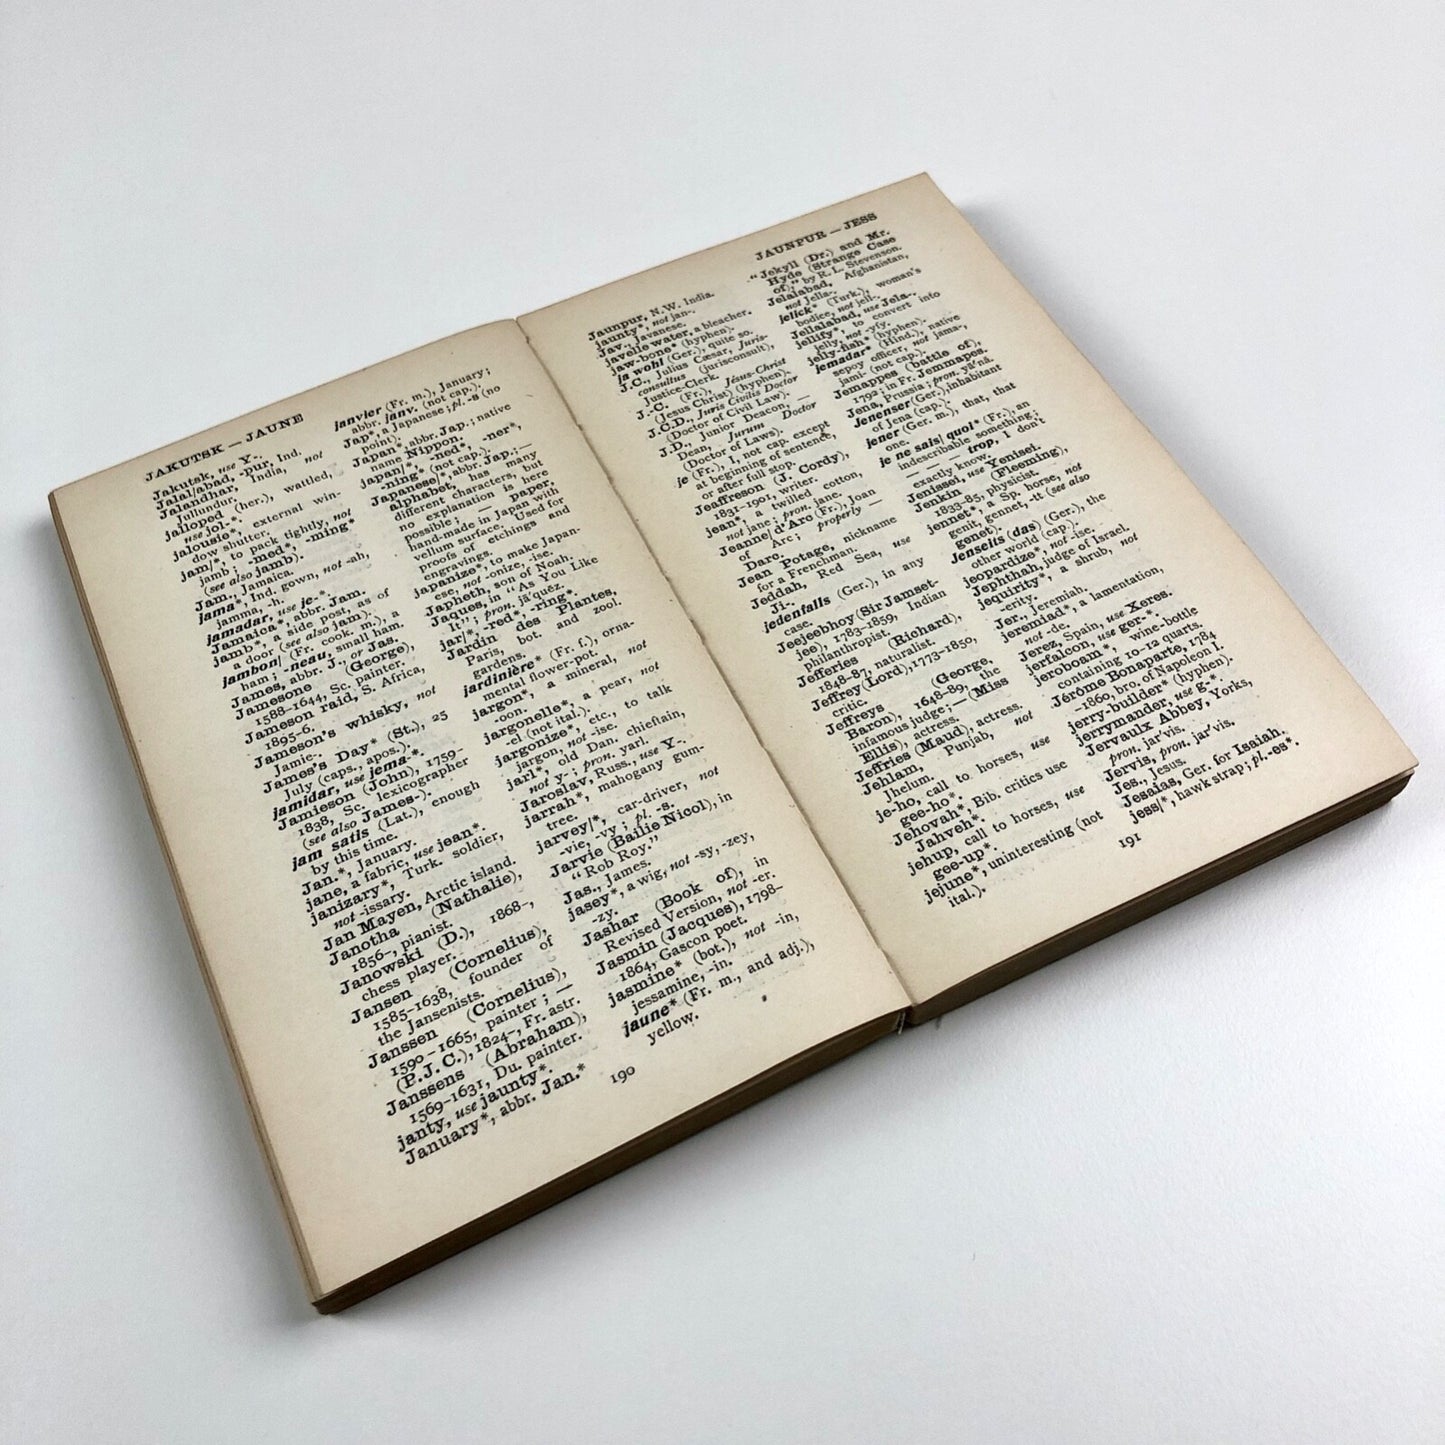 JAKUTSK — JAUNE
Jakutsk, use Y-.
Jalal/abad, -pur, Ind.
Jalandhar, India, not
Jullundur.
jalloped (her.), wattled,
use jol-*.
jalousie*, external win-
dow shutter.
jam/*, to pack tightly, not
jamb; -med*, -ming*
(see also jamb).
Jam., Jamaica.
jama*, Ind. gown, not -ah,
jamma, -h.
jamadar, use je-*.
Jamaica*, abbr. Jam.
jamb*, a side post, as of
a door (see also jam).
jambon/ (Fr. cook, m.), a
ham; -neau, small ham.
James, abbr. J., or Jas.
Jamesone (George),
1588-1644, Sc. painter.
Jameson raid, S. Africa,
1895-6.
Jameson's whisky, not
Jamie-.
James's Day* (St.), 25
July (caps., apos.).
jamidar, use jema-*.
Jamieson (John), 1759-
1838, Sc. lexicographer
(see also James-).
jam satis (Lat.), enough
by this time.
Jan.*, January.
jane, a fabric, use jean*.
janizary*, Turk. soldier,
not -issary.
Jan Mayen, Arctic island.
Janotha (Nathalie),
1856-, pianist.
Janowski (D.), 1868-,
chess player.
Jansen (Cornelius),
1585-1638, founder of
the Jansenists.
Janssen (Cornelius),
1590-1665, painter; —
(P.J.C.), 1824-, Fr. astr.
Janssens (Abraham),
1569-1631, Du. painter.
janty, use jaunty*.
January*, abbr. Jan.*
janvier (Fr. m.), January;
abbr. janv. (not cap.).
Jap*, a Japanese; pl. -s (no
point).
Japan*, abbr. Jap.; native
name Nippon.
japan/*, -ned*, -ner*,
-ning* (not cap.).
Japanese/*, abbr. Jap.; —
alphabet, has many
different characters, but
no explanation is here
possible; — paper,
hand-made in Japan with
vellum surface. Used for
proofs of etchings and
engravings.
japanize*, to make Japan-
ese, not -onize, -ise.
Japheth, son of Noah.
Jaques, in "As You Like
It"; pron. jā'quēz.
jar/*, -red*, -ring*.
Jardin des Plantes,
Paris, bot. and zool.
gardens.
jardinière* (Fr. f.), orna-
mental flower-pot.
jargon*, a mineral, not
-oon.
jargonelle*, a pear, not
-el (not ital.).
jargonize*, etc., to talk
jargon, not -ise.
jarl*, old Dan. chieftain,
not y-; pron. yarl.
Jaroslav, Russ., use Y-.
jarrah*, mahogany gum-
tree.
jarvey/*, car-driver, not
-vie, -vy; pl. -s.
Jarvie (Bailie Nicol), in
"Rob Roy."
Jas., James.
jasey*, a wig, not -sy, -zey,
-zy.
Jashar (Book of), in
Revised Version, not -er.
Jasmin (Jacques), 1798-
1864, Gascon poet.
jasmine* (bot.), not -in,
jessamine, -in.
jaune* (Fr. m., and adj.),
yellow.
190
JAUNPUR — JESS
Jaunpur, N.W. India.
jaunty*, not jan-.
Jav., Javanese.
javelle water, a bleacher.
jaw-bone* (hyphen).
ja wohl (Ger.), quite so.
J.C., Julius Cæsar, Juris-
consultus (jurisconsult),
Justice-Clerk.
J.-C. (Fr.), Jésus-Christ
(Jesus Christ) (hyphen).
J.C.D., Juris Civilis Doctor
(Doctor of Civil Law).
J.D., Junior Deacon, —
Dean, Jurum Doctor
(Doctor of Laws).
je (Fr.), I, not cap. except
at beginning of sentence,
or after full stop.
Jeaffreson (J. Cordy),
1831-1901, writer.
jean*, a twilled cotton,
not jane; pron. jane.
Jeanne/ d'Arc (Fr.), Joan
of Arc; properly —
Darc.
Jean Potage, nickname
for a Frenchman.
Jeddah, Red Sea, use
Ji-.
jedenfalls (Ger.), in any
case.
Jeejeebhoy (Sir Jamset-
jee), 1783-1859, Indian
philanthropist.
Jefferies (Richard),
1848-87, naturalist.
Jeffrey (Lord), 1773-1850,
critic.
Jeffreys (George,
Baron), 1648-89, the
infamous judge; — (Miss
Ellis), actress.
Jeffries (Maud), actress.
Jehlam, Punjab, not
Jhelum.
je-ho, call to horses, use
gee-ho*.
Jehovah*, Bib. critics use
Jahveh*.
jehup, call to horses, use
gee-up*.
jejune*, uninteresting (not
ital.).
"Jekyll (Dr.) and Mr.
Hyde (Strange Case
of)," by R. L. Stevenson.
Jelalabad, Afghanistan,
not jella-.
jelick* (Turk.), woman's
bodice, not jell-.
Jellalabad, use Jela-.
jellify*, to convert into
jelly, not -yfy.
jelly-fish* (hyphen).
jemadar* (Hind.), native
sepoy officer, not jama-,
jami- (not cap.).
Jemappes (battle of),
1792; in Fr. Jemmapes.
Jena, Prussia; pron. yā'nă.
Jenenser (Ger.), inhabitant
of Jena (cap.).
jener (Ger. m.), that, that
one.
je ne sais/ quoi* (Fr.), an
indescribable something;
— trop, I don't
exactly know.
Jenissei, use Yenisei.
Jenkin (Fleeming),
1833-85, physicist.
jennet*, a Sp. horse, not
genit, gennet, -tt (see also
genet).
Jenseits (das) (Ger.), the
other world (cap.).
jeopardize*, not -ise.
Jephthah, judge of Israel.
jequirity*, a shrub, not
-erity.
Jer., Jeremiah.
jeremiad*, a lamentation,
not -de.
Jerez, Spain, use Xeres.
jerfalcon, use ger-*.
jeroboam*, wine-bottle
containing 10-12 quarts.
Jérôme Bonaparte, 1784
-1860, bro. of Napoleon I.
jerry-builder* (hyphen).
jerrymander, use g-*.
Jervaulx Abbey, Yorks,
pron. jar'vis.
Jervis, pron. jar'vis.
Jes., Jesus.
Jesaias, Ger. for Isaiah.
jess/*, hawk strap; pl. -es*.
191